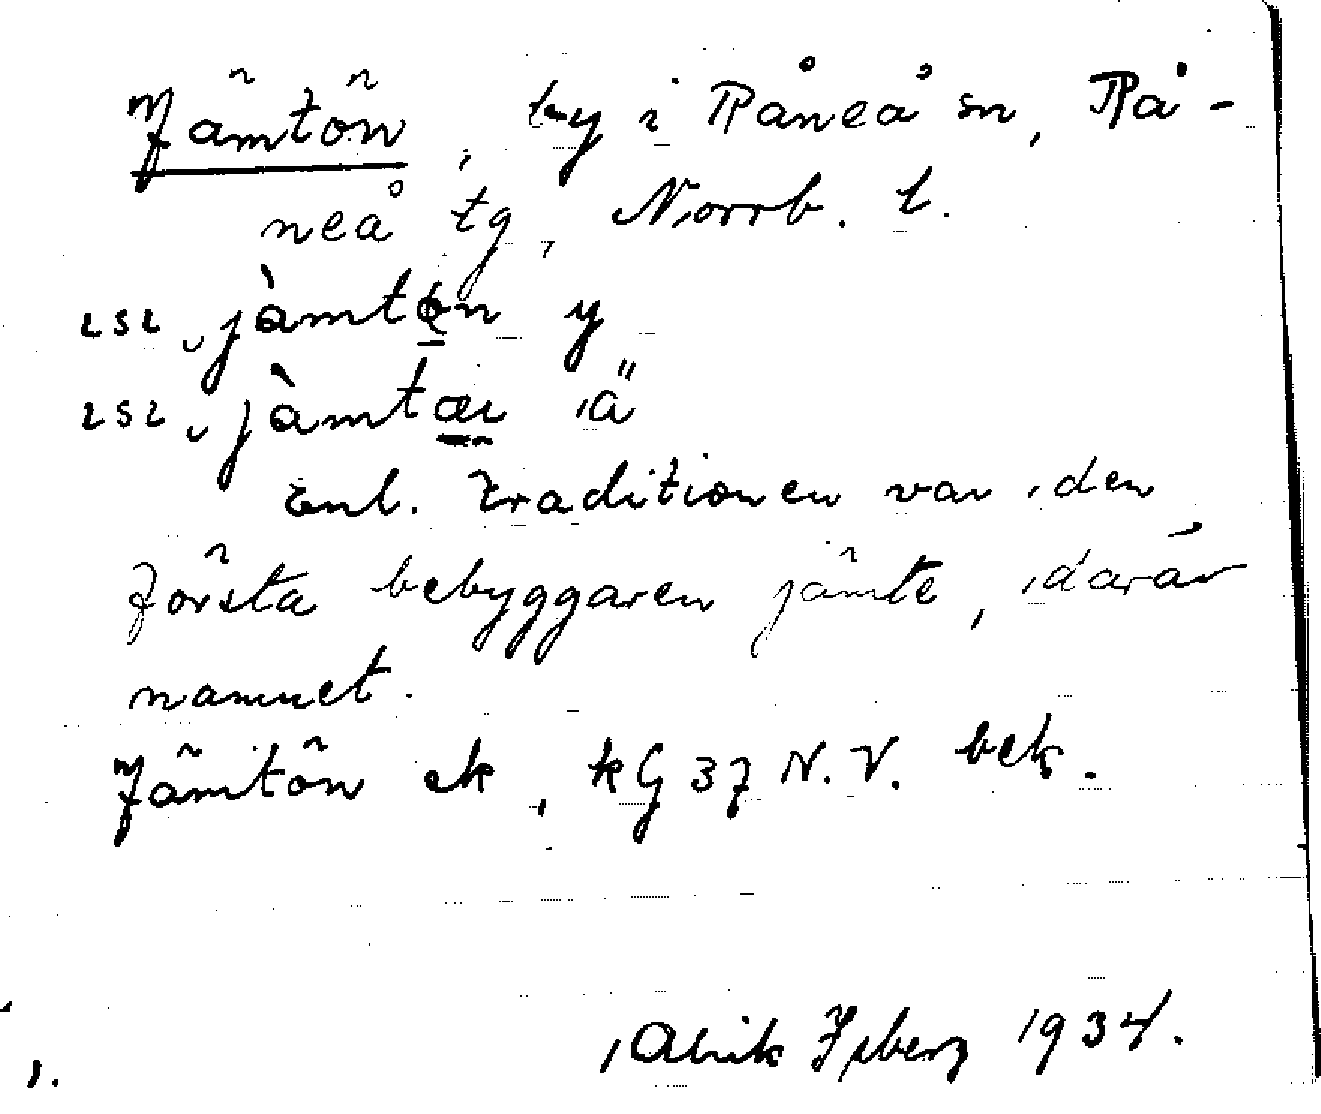 Jämtön, by i Råneå sn, Rå-
neå tg, Norrb. l.
jàmtön y
jàmtær ä
Enl. traditionen var den
första bebyggaren jämte, därav
namnet.
Jämtön ek, kG 37 N.V. bek.
1934.